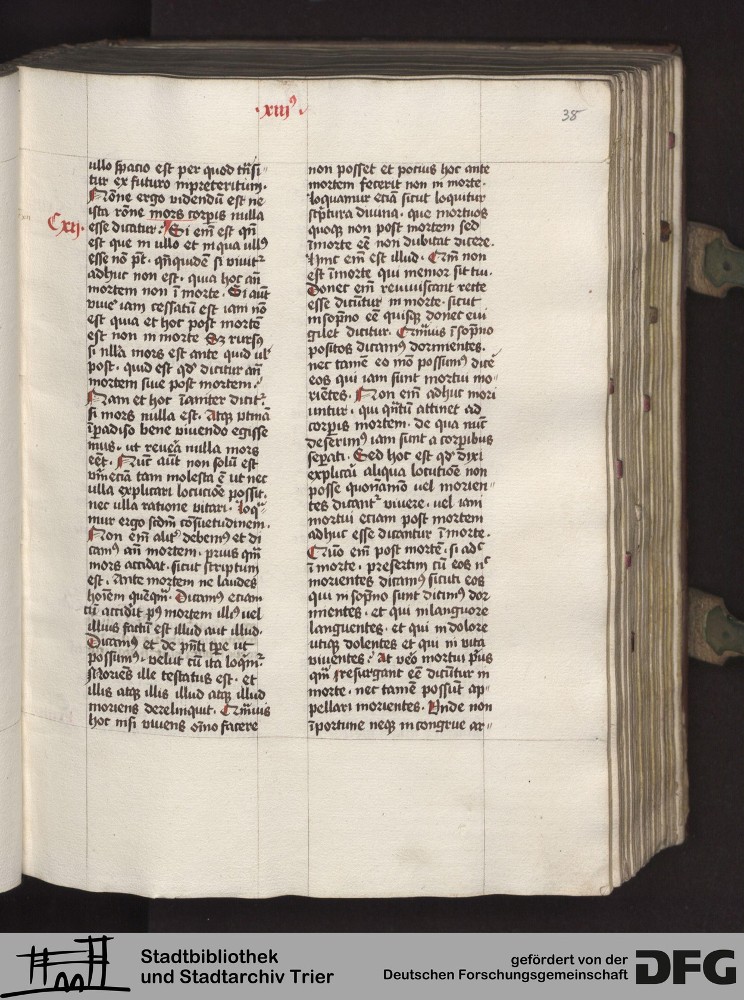 ·xiii⁹·
38
ullo spacio est per quod tn̄si-
tur ex futuro in preteritum·
Rōne ergo videndū est ne
ista rōne mors corpis nulla
Cxij·
esse dicatur: Si em̄ est qn̄
est que in ullo et in qua ullꝰ
esse nō pt̄· qn̄quidē si vivit²
adhuc non est· quia hoc an̄
mortem non ī morte· Si aūt
vivē iam cessatū est iam nō
est quia et hoc post mortē
est non in morte Sꝫ rursꝰ
si nll̄a mors est ante quid ul̄
post· quid est qd' dicitur an̄
mortem sive post mortem·
Nam et hoc īaniter dicit²·
si mors nulla est· Atqꝫ
īpadiso bene vivendo egisse
mus· ut revēa nulla mors
eēt· Nūc aūt non solū est
vm̄eciā tam molesta ē ut nec
ulla explicari locucōe possit·
nec ulla ratione vitari· loq̄-
mur ergo scdm̄ cōsuetudinem·
Non em̄ alit² debemꝰ et di
camꝰ an̄ mortem· prius qm̄
mors accidat· sicut scriptum
est· Ante mortem ne laudes
hoīem quēqm̄· Dicamꝰ eciam
cū accidit pꝰ mortem illiꝰ vel
illius factū est illud aut illud·
Dicamꝰ et de pn̄ti tp̄e ut
possumꝰ· velut cū ita loq̄m²·
Moriēs ille testatus est· et
illis atqꝫ illis illud atqꝫ illud
moriens derelinquit· Cr̄mivis
hoc nisi vivens oīno facere
non posset et potius hoc ante
mortem fecerit non in morte·
loquamur eciā sicut loquitur
scptura divina· que mortuos
quoqꝫ non post mortem sed
ī morte eē non dubitat dicere·
Hinc em̄ est illud· Qm̄ non
est ī morte qui memor sit tui·
Donec em̄ reviviscant recte
esse dicūtur in morte· sicut
in sopno eē quisqꝫ donec evi
gilet dicitur· Cr̄mivis ī sopno
positos dicamꝰ dormientes·
nec tamē eo mō possumꝰ dicē
eos qui iam sunt mortui mo-
riētes· Non em̄ adhuc mori
untur· qui qn̄tū attinet ad
corpis mortem· de qua nūc
deserimꝰ iam sunt a corpibus
sepati· Sed hoc est qd' dixi
explicari aliqua locutiōe non
posse quonāmō vel morien-
tes dicant² vivere· vel iam
mortui eciam post mortem
adhuc esse dicantur ī morte·
Quō em̄ post mortē· si adᶜ
ī morte· presertim cū eos nᶜ
morientes dicamꝰ sicuti eos
qui in sopno sunt dicimꝰ dor
mientes· et qui in languore
languentes· et qui in dolore
utiqꝫ dolentes et qui in vita
viventes: At vēo mortui pꝰus
qm̄ resurgant eē dicūtur in
morte· nec tamē possūt ap-
pellari morientes· Unde non
īportune neqꝫ incongrue ar-
Stadtbibliothek
und Stadtarchiv Trier
gefördert von der
Deutschen Forschungsgemeinschaft
DFG